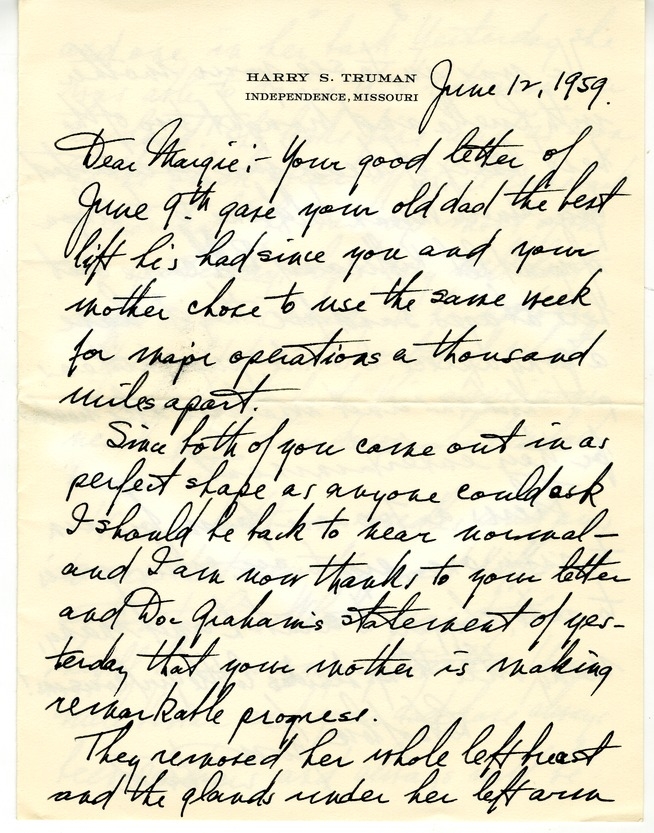 HARRY S. TRUMAN
INDEPENDENCE, MISSOURI
June 12, 1959.
Dear Margie:- Your good letter of
June 9th gave your old dad the best
lift he's had since you and your
mother chose to use the same week
for major operations a thousand
miles apart.
Since both of you came out in as
perfect shape as anyone could ask
I should be back to near normal—
and I am now thanks to your letter
and Doc Graham's statement of yes-
terday that your mother is making
remarkable progress.
They removed her whole left breast
and the glands under her left arm